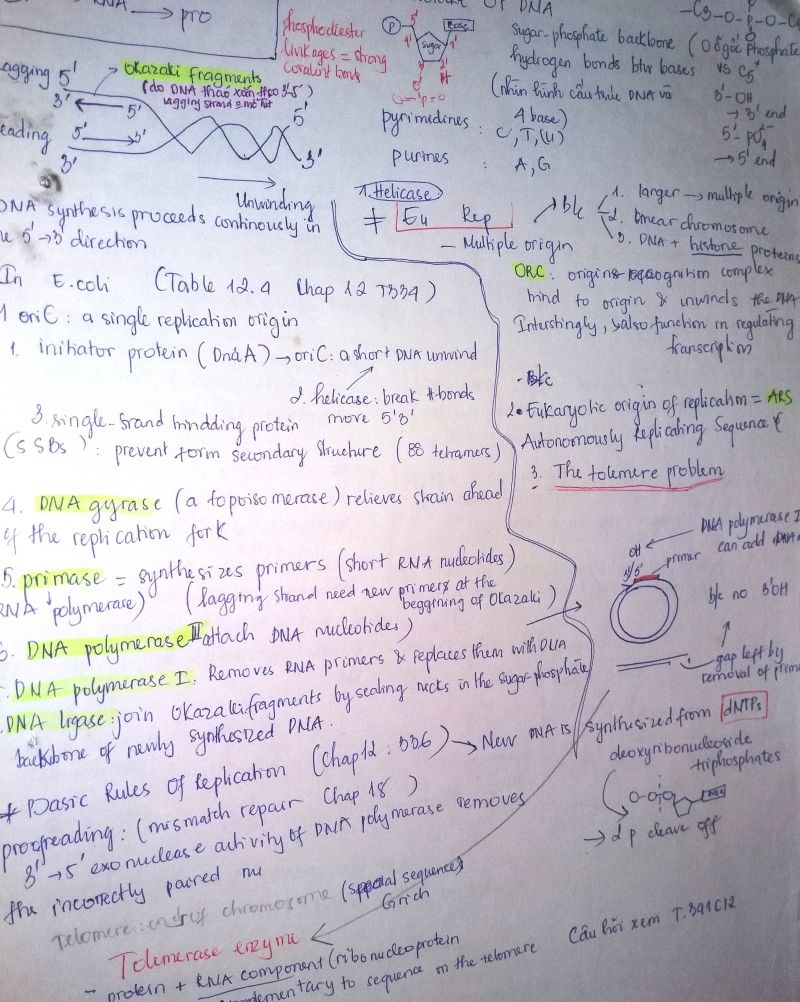 RNA → pro
OF DNA
phosphodiester
linkages = strong
covalent bonds
P
5'
Base
Sugar
1'
sugar-phosphate backbone (O^- gốc phosphate
hydrogen bonds btw bases vs C5'
(nhìn hình cấu trúc DNA và
3'-OH
→ 3' end
→ 5' end
4 base)
pyrimidines : C, T, (U)
purines : A, G
agging 5'
Okazaki fragments
(do DNA tháo xoắn theo 3'-5')
3'
5'
eading 5' → 3'
3'
5'
3'
Unwinding
DNA synthesis proceeds continously in
5' → 3' direction
1. Helicase
≠ Eu Rep
b/c
1. larger → multiple origin
2. linear chromosome
3. DNA + histone proteins
— Multiple origin
ORC : origin recognition complex
bind to origin & unwinds the DNA
Interstingly, also function in regulating
transcription
In E.coli (Table 12.4 Chap 12 T334)
oriC : a single replication origin
1. initiator protein (DnaA) → oriC : a short DNA unwind
2. helicase : break H-bonds
more 5'3'
3. single-strand bindding protein
(SSBs) : prevent form secondary structure ( tetramers)
2. Eukaryotic origin of replication = ARS
Autonomously Replicating Sequence
3. The tolemere problem
4. DNA gyrase (a topoisomerase) relieves strain ahead
of the replication fork
5. primase = synthesizes primers (short RNA nucleotides)
RNA polymerase) (lagging strand need new primers at the
beggining of Okazaki)
DNA polymerase III attach DNA nucleotides)
DNA polymerase I : Removes RNA primers & replaces them with DNA
DNA ligase : join Okazaki fragments by sealing nicks in the sugar-phosphate
backbone of newly synthesized DNA.
OH
5'
primer
DNA polymerase I
can add DNA
b/c no 3'OH
gap left by
removal of prime
* Basic Rules Of Replication (Chap 12 : 336) → New DNA is synthesized from dNTPs
deoxyribonucleoside
triphosphates
→ 2 p cleave off
proofreading : (mismatch repair Chap 18 )
3' → 5' exonuclease activity of DNA polymerase removes
the incorrectly paired nu
Telomere : end of chromosome (special sequences
G rich
Tolemerase enzyme
- protein + RNA component (ribonucleoprotein
complementary to sequence on the telomere
Câu hỏi xem T.341 C12